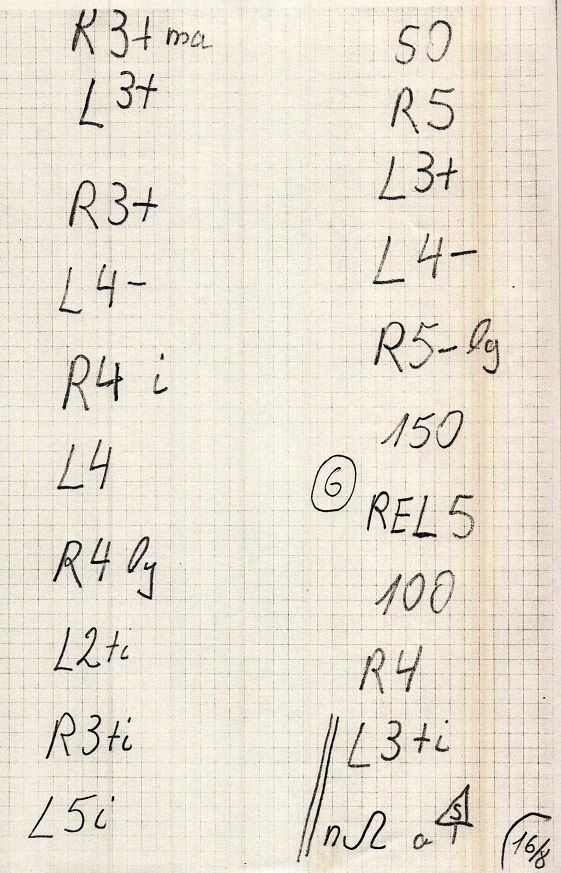 R3+ ma
L3+
R3+
L4-
R4 i
L4
R4 lg
L2+i
R3+i
L5i
50
R5
L3+
L4-
R5- lg
150
6
REL5
100
R4
L3+i
nΩ a S
16/8